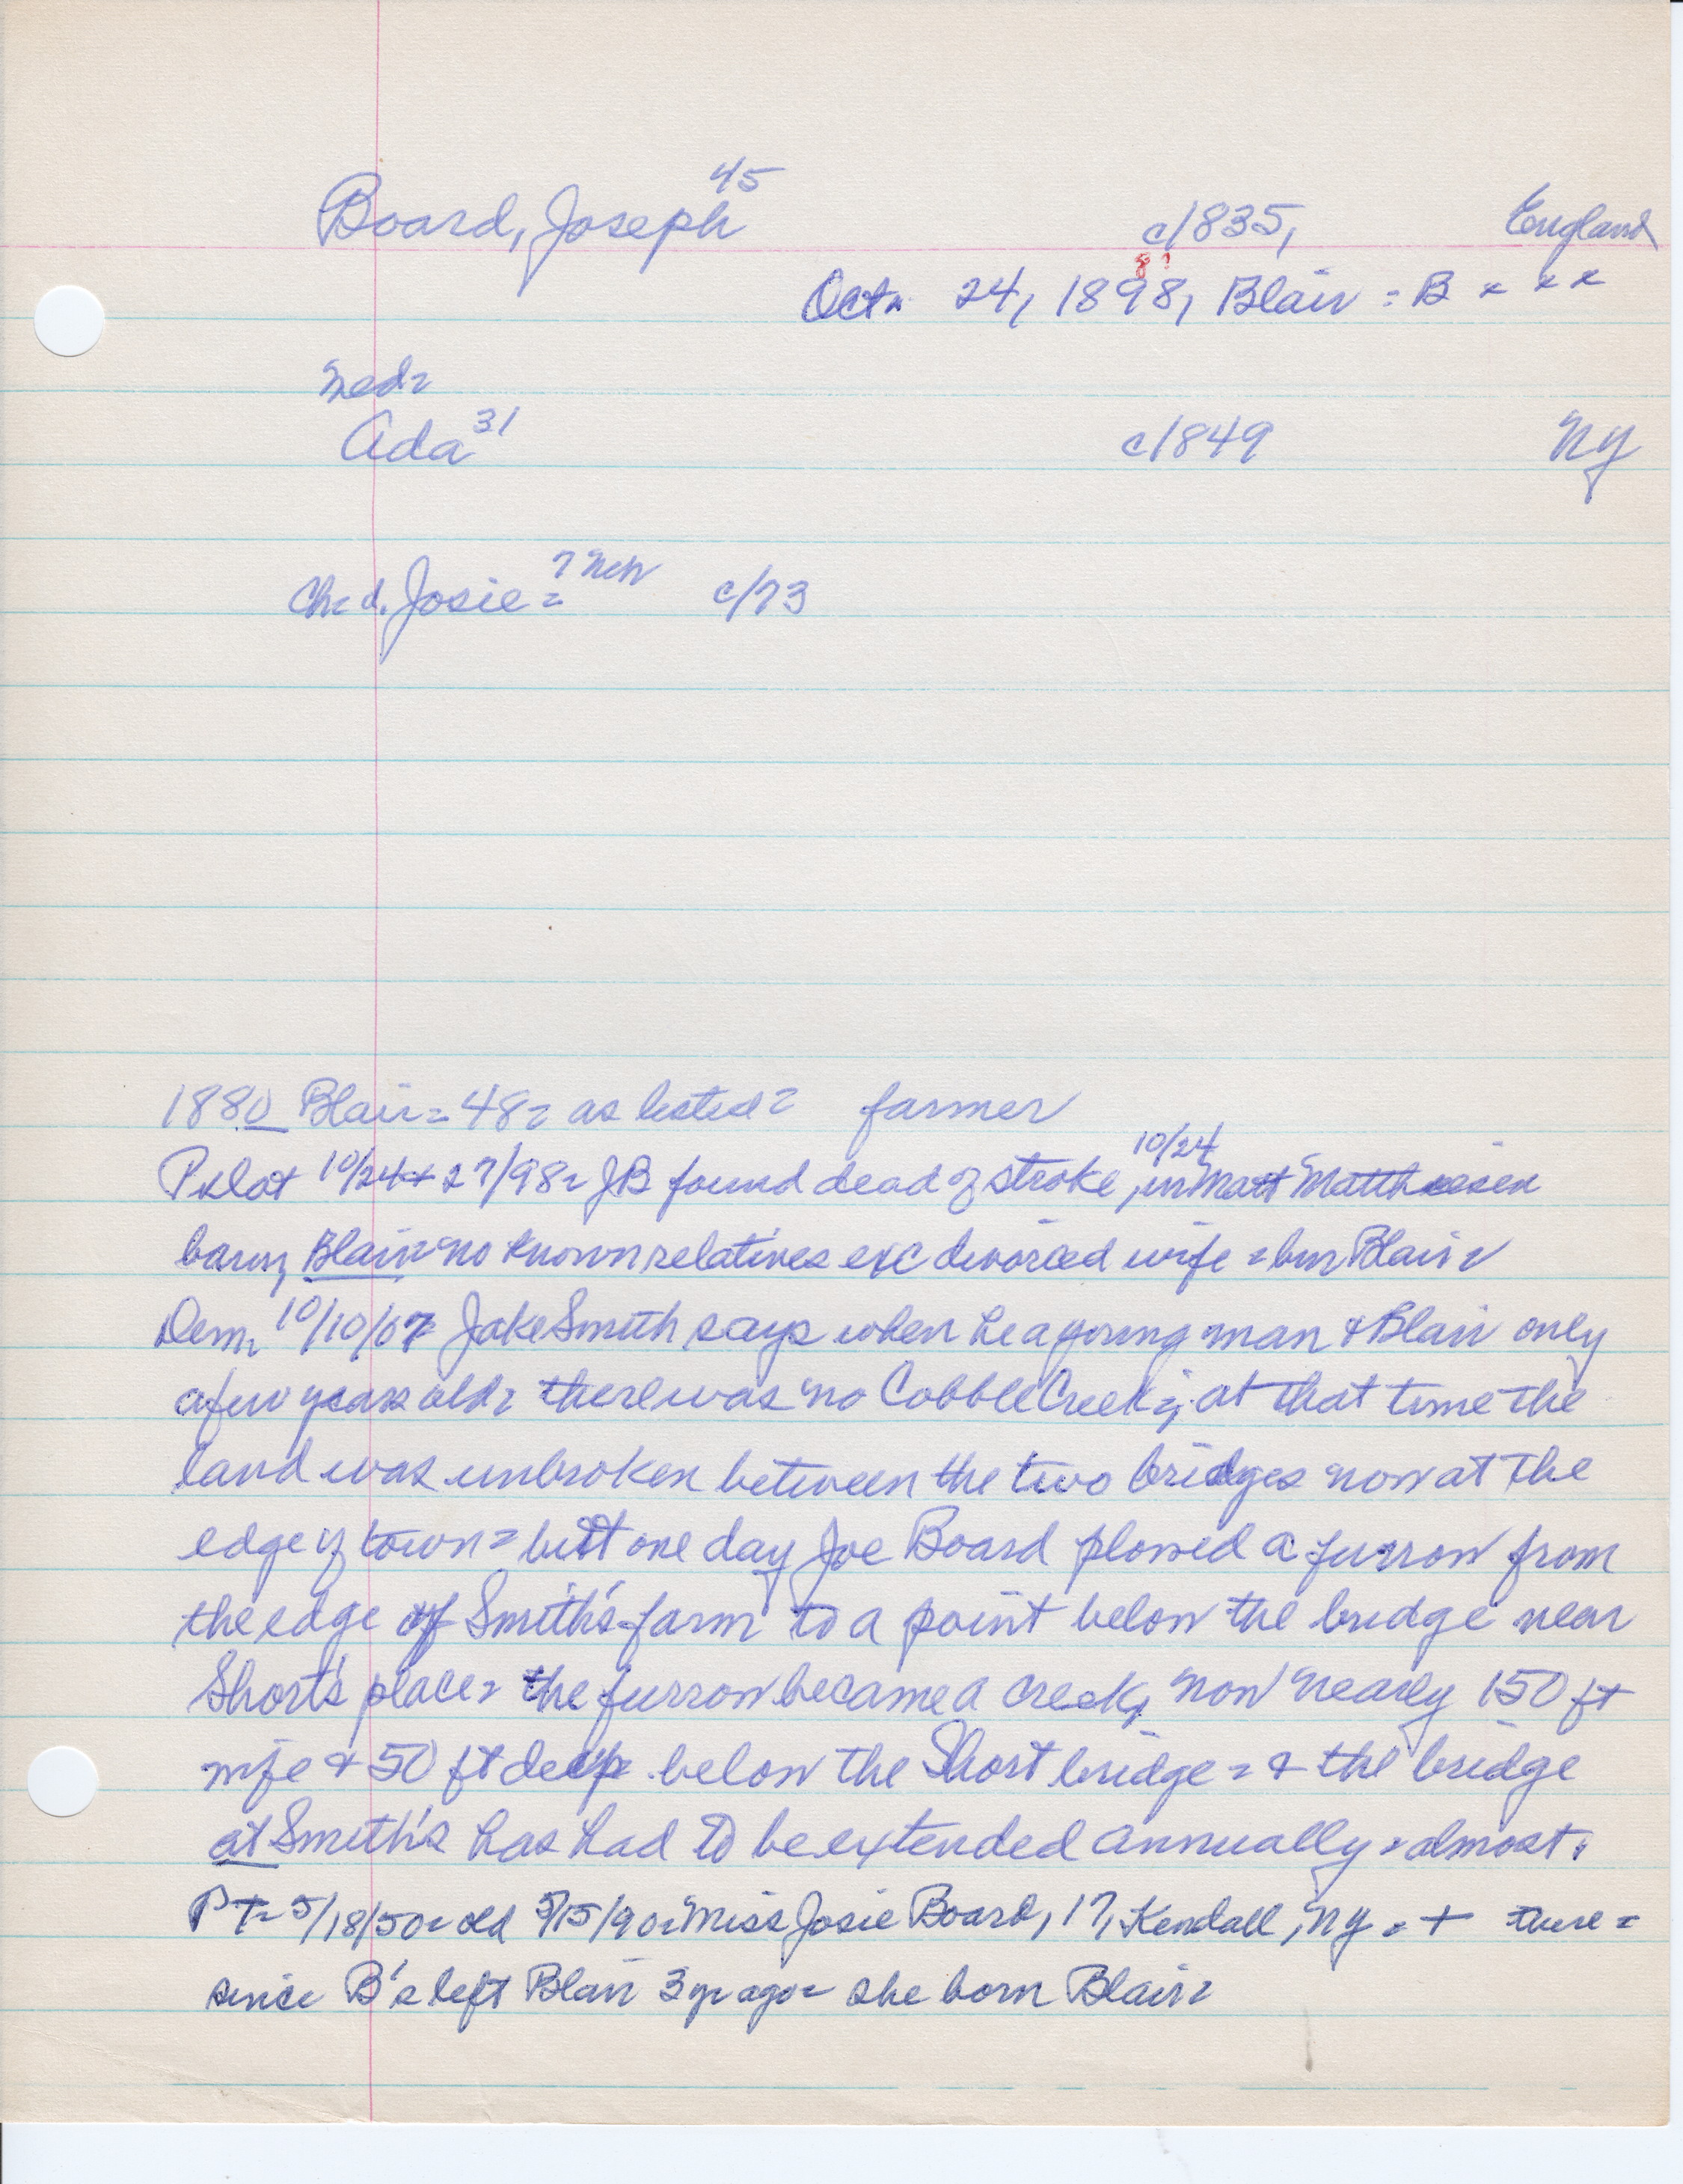 Board, Joseph 45 c/1835, England
8?
Oct. 24, 1898, Blair = B x x x
Ada 31 c/1849 NY
Ch= d. Josie = 7 Neb c/73
1880 Blair = 48 = as listed = farmer
Pilot 10/24 + 27/98 = JB found dead of stroke, 10/24 in Matt Matthiesen
barn, Blair = no known relatives exc divorced wife = bur Blair =
Dem, 10/10/07 Jake Smith says when he a young man & Blair only
a few years old = there was no Cobble Creek =, at that time the
land was unbroken between the two bridges now at the
edge of town = but one day Joe Board plowed a furrow from
the edge of Smith's farm to a point below the bridge near
Short's place = the furrow became a creek, now nearly 150 ft
wife & 50 ft deep below the Short bridge = & the bridge
at Smith's has had to be extended annually = almost.
PT= 5/18/50 = old 5/15/90 = Miss Josie Board, 17, Kendall, NY = + there =
since B's left Blair 3 yr ago = she born Blair =